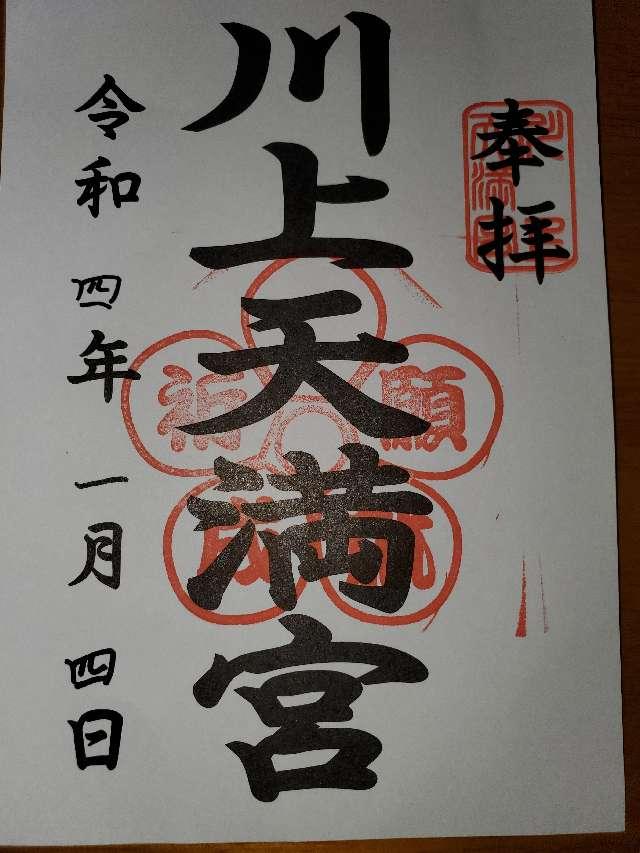 奉拝
川上天満宮
願
祈
成
就
令和四年一月四日